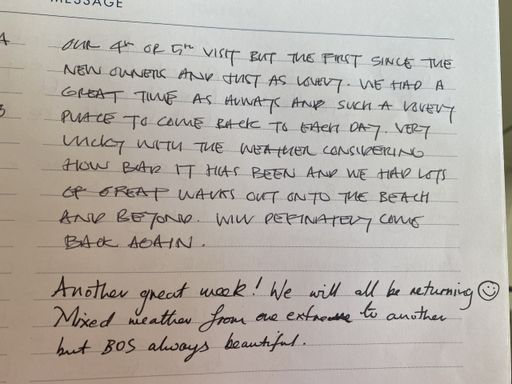 MESSAGE
OUR 4th OR 5th VISIT BUT THE FIRST SINCE THE
NEW OWNERS AND JUST AS LOVELY. WE HAD A
GREAT TIME AS ALWAYS AND SUCH A LOVELY
PLACE TO COME BACK TO EACH DAY. VERY
LUCKY WITH THE WEATHER CONSIDERING
HOW BAD IT HAS BEEN AND WE HAD LOTS
OF GREAT WALKS OUT ONTO THE BEACH
AND BEYOND. WILL DEFINATELY COME
BACK AGAIN.
Another great week! We will all be returning ☺
Mixed weather from one extreme to another
but BOS always beautiful.